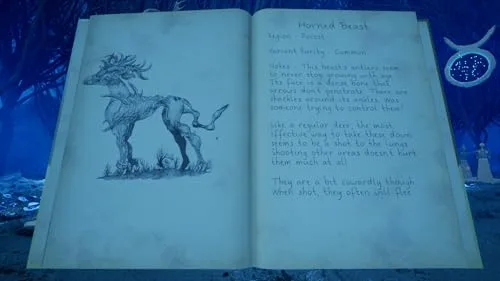 Horned Beast
Region - Forest
Variant Rarity - Common
Notes - This beast's antlers seem
to never stop growing with age
The face is a dense bone that
arrows don't penetrate. There are
shackles around its ankles. Was
someone trying to control them?
Like a regular deer, the most
effective way to take these down
seems to be a shot to the lungs
shooting other areas doesn't hurt
them much at all
They are a bit cowardly though
When shot, they often will flee